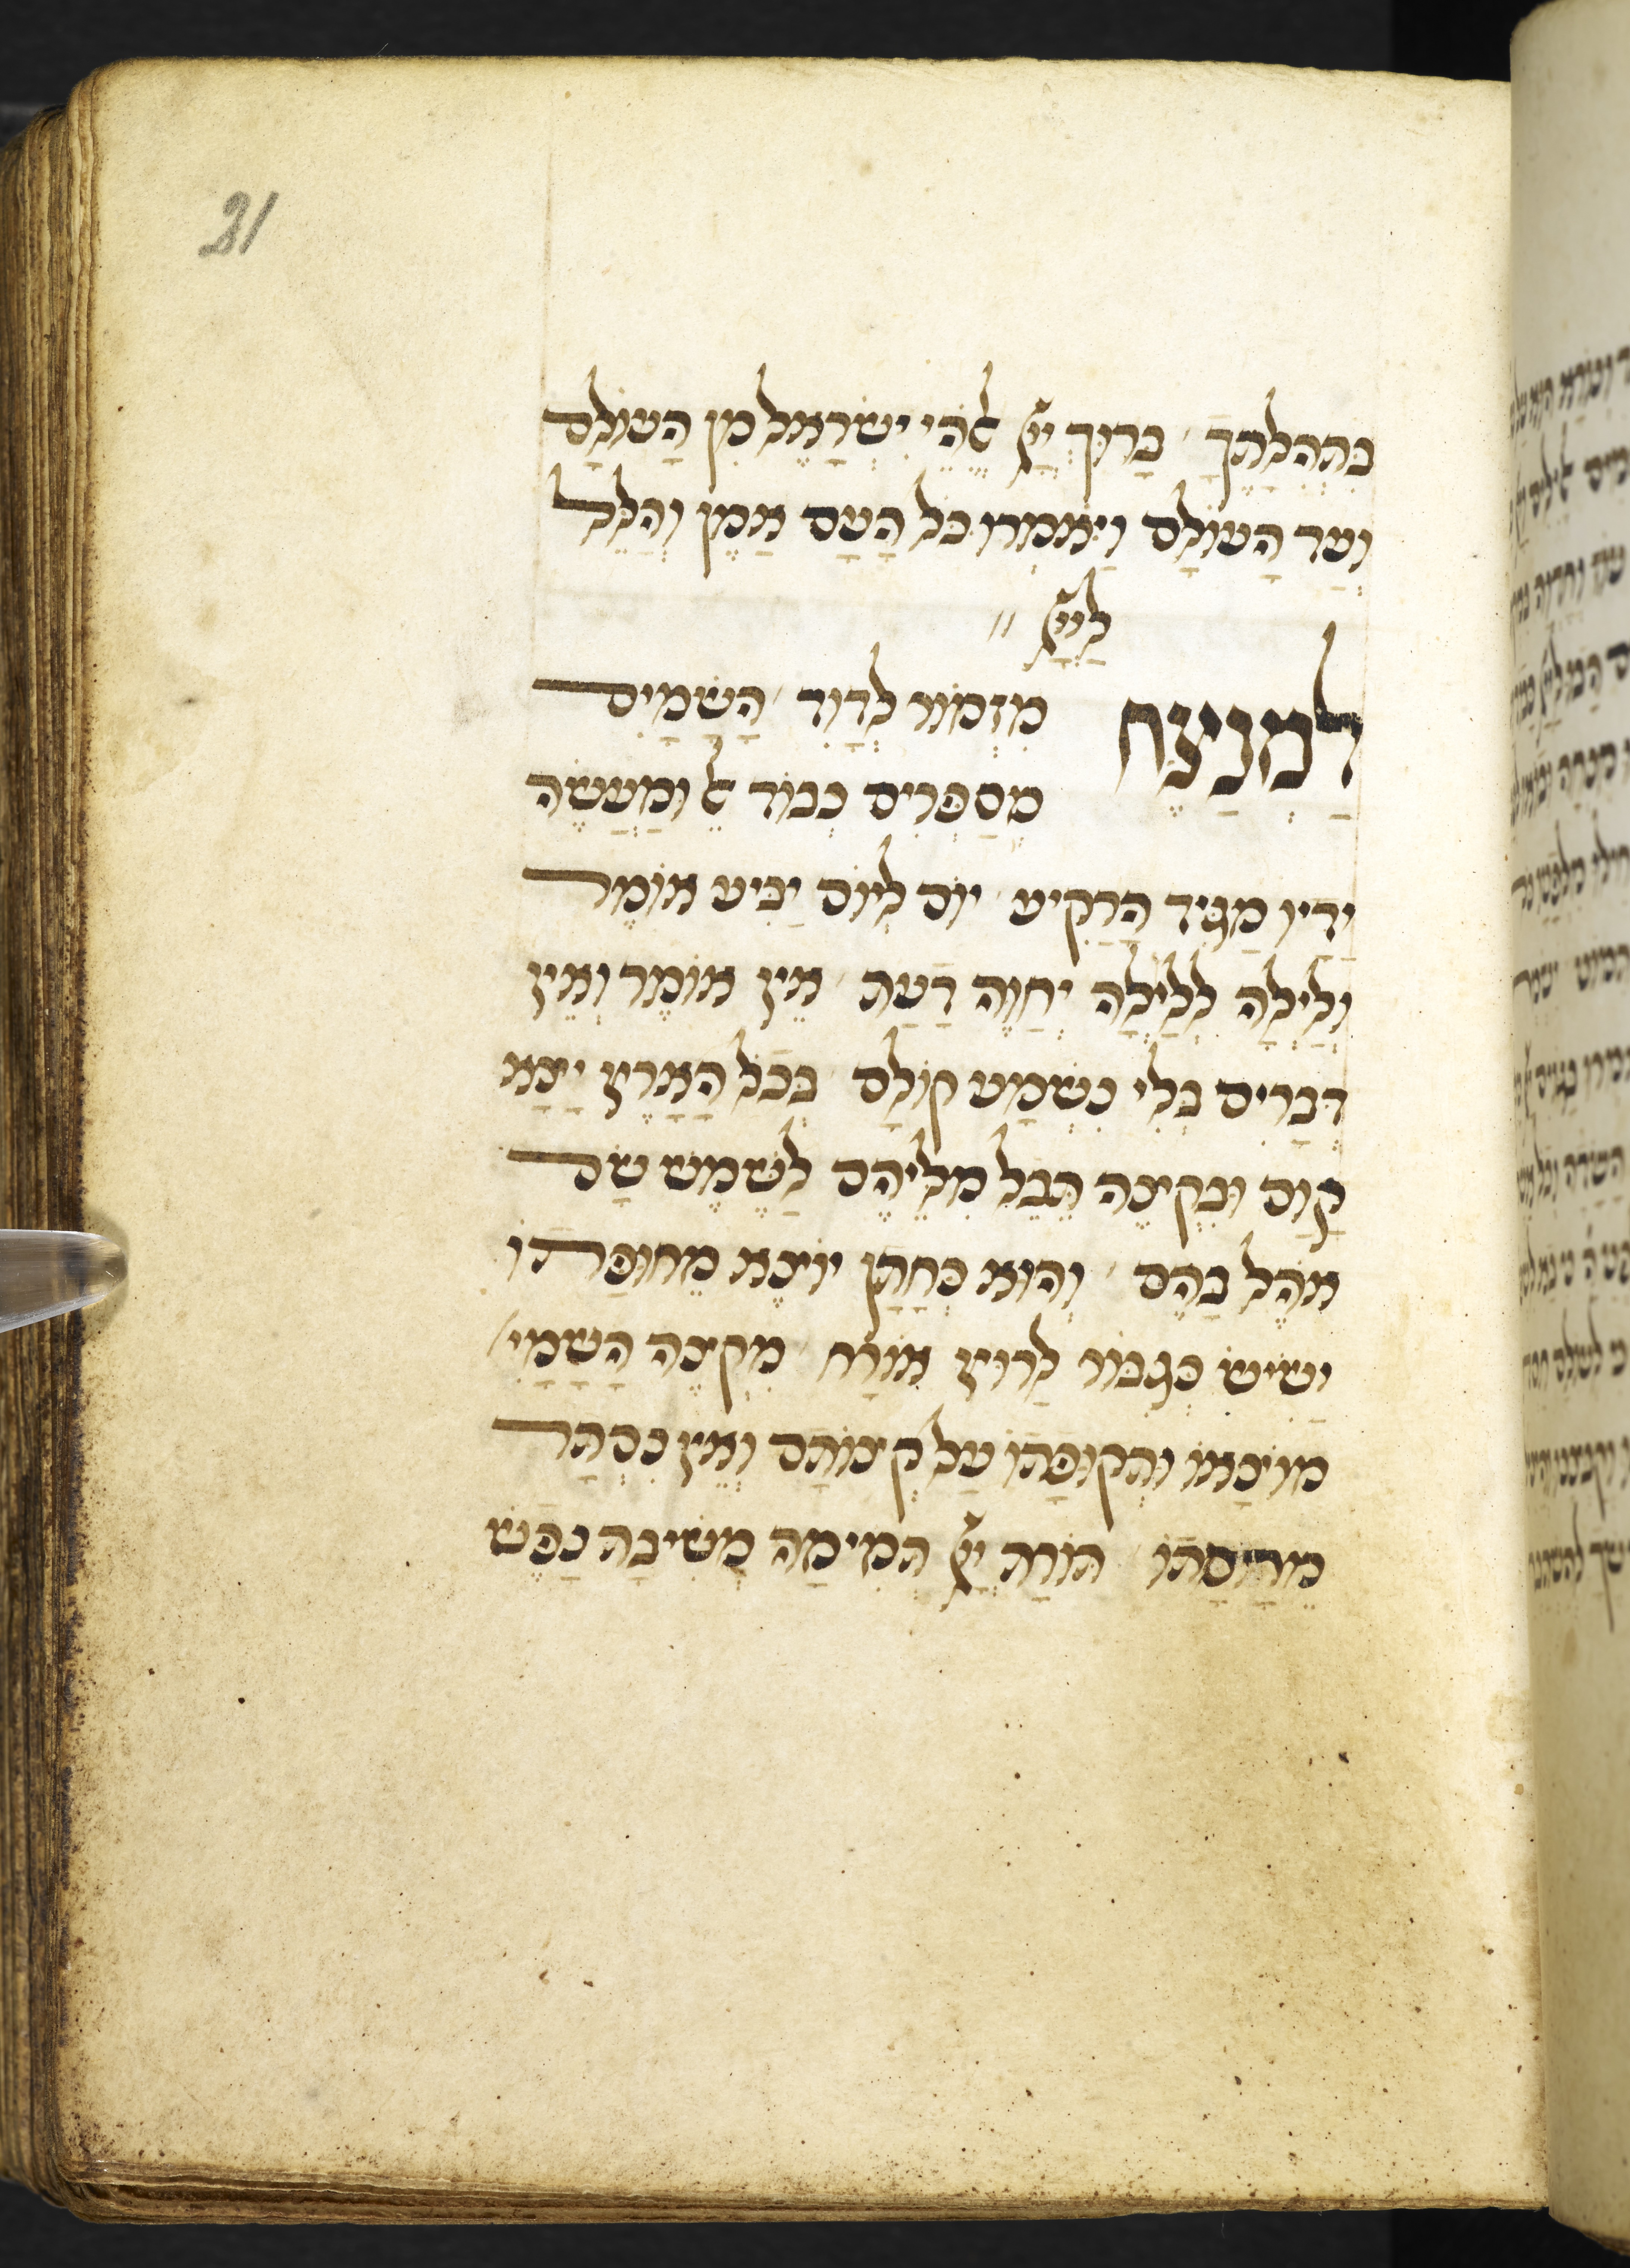 21
בִּתְהִלָּתֶךָ בָּרוּךְ יְיָ אֱלֹהֵי יִשְׂרָאֵל מִן הָעוֹלָם
וְעַד הָעוֹלָם וַיֹּאמְרוּ כָּל הָעָם אָמֵן וְהַלֵּל
לַיְיָ
לַמְנַצֵּחַ מִזְמוֹר לְדָוִד הַשָּׁמַיִם
מְסַפְּרִים כְּבוֹד אֵל וּמַעֲשֵׂה
יָדָיו מַגִּיד הָרָקִיעַ יוֹם לְיוֹם יַבִּיעַ אוֹמֶר
וְלַיְלָה לְלַיְלָה יְחַוֶּה דָּעַת אֵין אוֹמֶר וְאֵין
דְּבָרִים בְּלִי נִשְׁמָע קוֹלָם בְּכָל הָאָרֶץ יָצָא
קַוָּם וּבִקְצֵה תֵבֵל מִלֵּיהֶם לַשֶּׁמֶשׁ שָׂם
אֹהֶל בָּהֶם וְהוּא כְּחָתָן יוֹצֵא מֵחוּפָּתוֹ
יָשִׂישׂ כְּגִבּוֹר לָרוּץ אוֹרַח מִקְצֵה הַשָּׁמַיִ
מוֹצָאוֹ וּתְקוּפָתוֹ עַל קְצוֹתָם וְאֵין נִסְתָּר
מֵחַמָּתוֹ תּוֹרַת יְיָ תְּמִימָה מְשִׁיבָה נָפֶשׁ